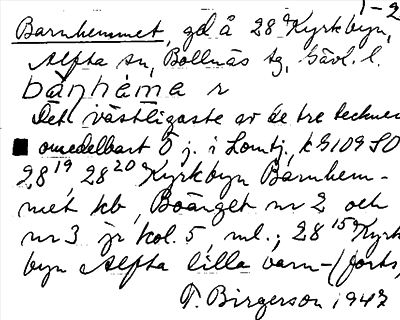 1-2
Barnhemmet, gd å 28² Kyrkbyn,
Alfta sn, Bollnäs tg, Gävl. l.
bà̀nhèma r
Det västligaste av de tre tecknen
omedelbart Ö j. i Lomtj, k 9109 SO
28¹⁹, 28²⁰ Kyrkbyn Barnhem-
met kb, Boänget nr 2 och
nr 3 jr kol. 5, ml.; 28¹⁵ Kyrk
byn Alfta lilla barn- (forts,
T. Birgerson 1947